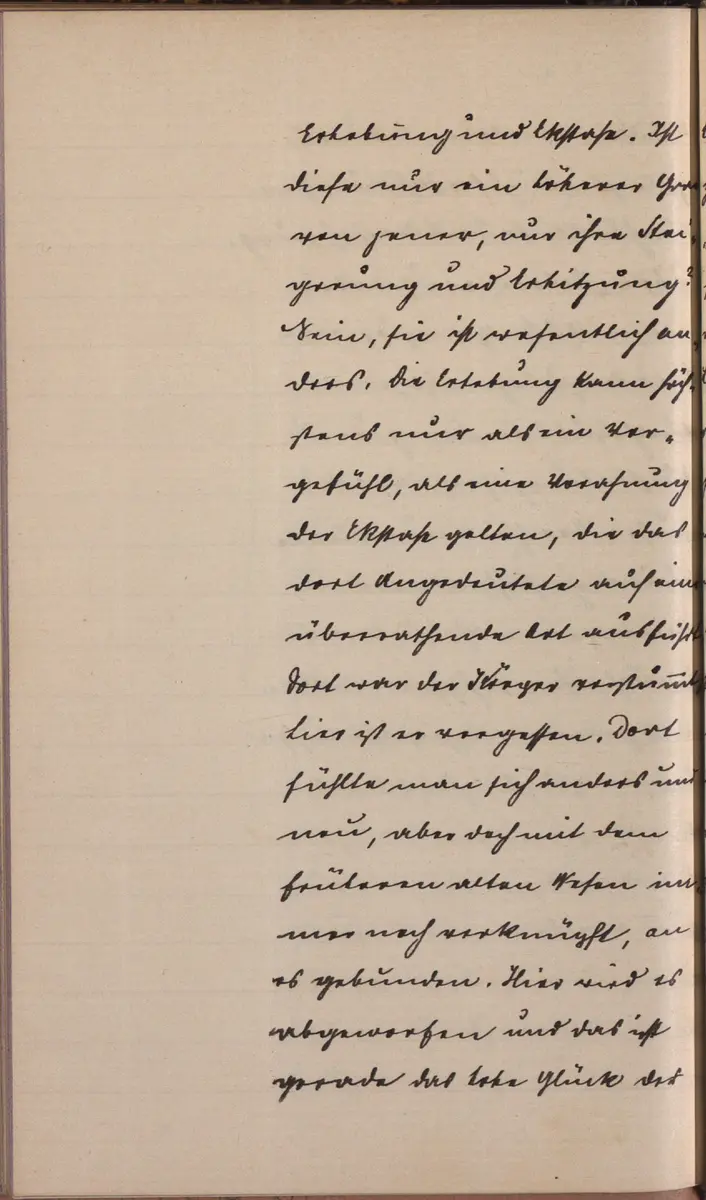 Erhebung und Ekstase. Ist
diese nur ein höherer Gra
von jener, nur ihre Stei-
gerung und Erhitzung?
Nein, sie ist wesentlich an-
ders. Die Erhebung kann höch-
stens nur als ein Vor-
gefühl, als eine Vorahnung
der Ekstase gelten, die das
dort Angedeutete auf eine
überrathende Art ausführt
Dort war der Körper verstummt
hier ist er vergessen. Dort
fühlte man sich anders und
neu, aber doch mit dem
früheren alten Wesen im
mer noch verknüpft, an
es gebunden. Hier wird es
abgeworfen und das ist
gerade das hohe Glück der